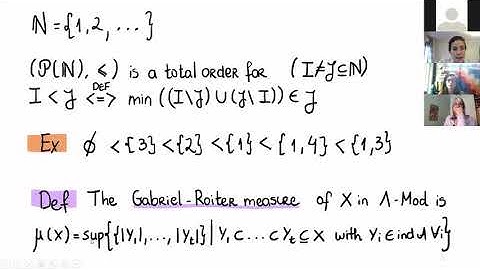 ℕ = {1, 2, ...}
(P(ℕ), ≤) is a total order for (I ≠ J ⊆ ℕ)
I < J ⇔ DEF min ((I \ J) ∪ (J \ I)) ∈ J
Ex ∅ < {3} < {2} < {1} < {1, 4} < {1, 3}
Def The Gabriel-Roiter measure of X in Λ-Mod is
μ(X) = sup{{|Y₁|, ..., |Yₜ|} | Y₁ ⊂ ... ⊂ Yₜ ⊆ X with Yᵢ ∈ ind Λ ∀i}